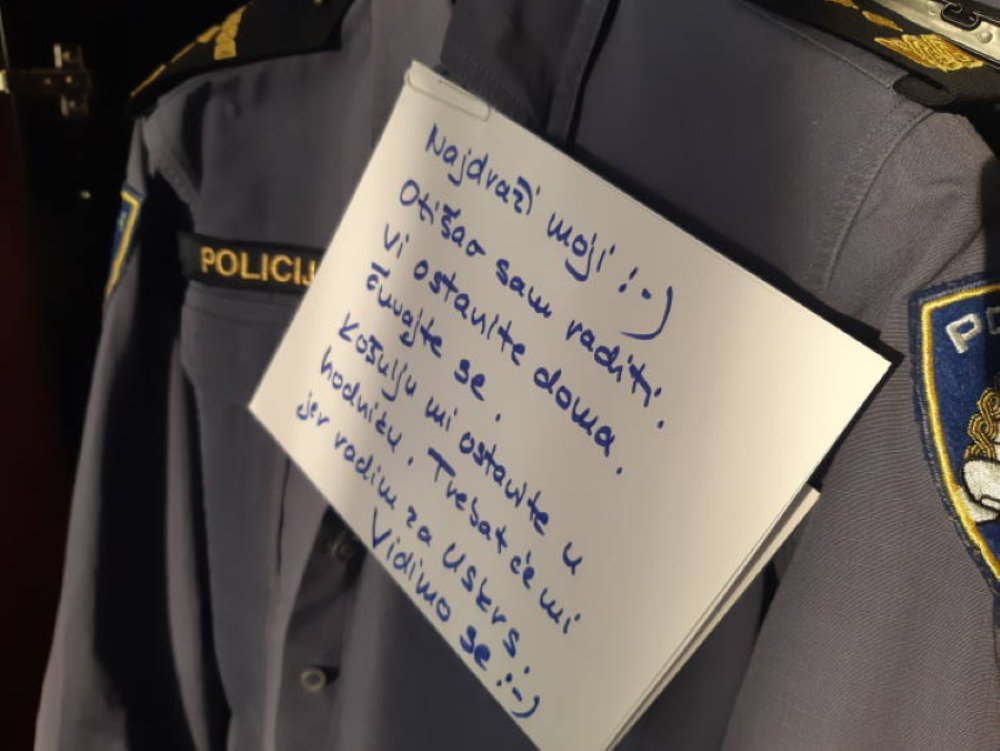 POLICIJ
Najdraži moji :-)
Otišao sam raditi.
Vi ostanite doma.
čuvajte se.
Košulju mi ostavite u
hodniku. Trebat će mi
jer radim za Uskrs.
Vidimo se :-)
PO